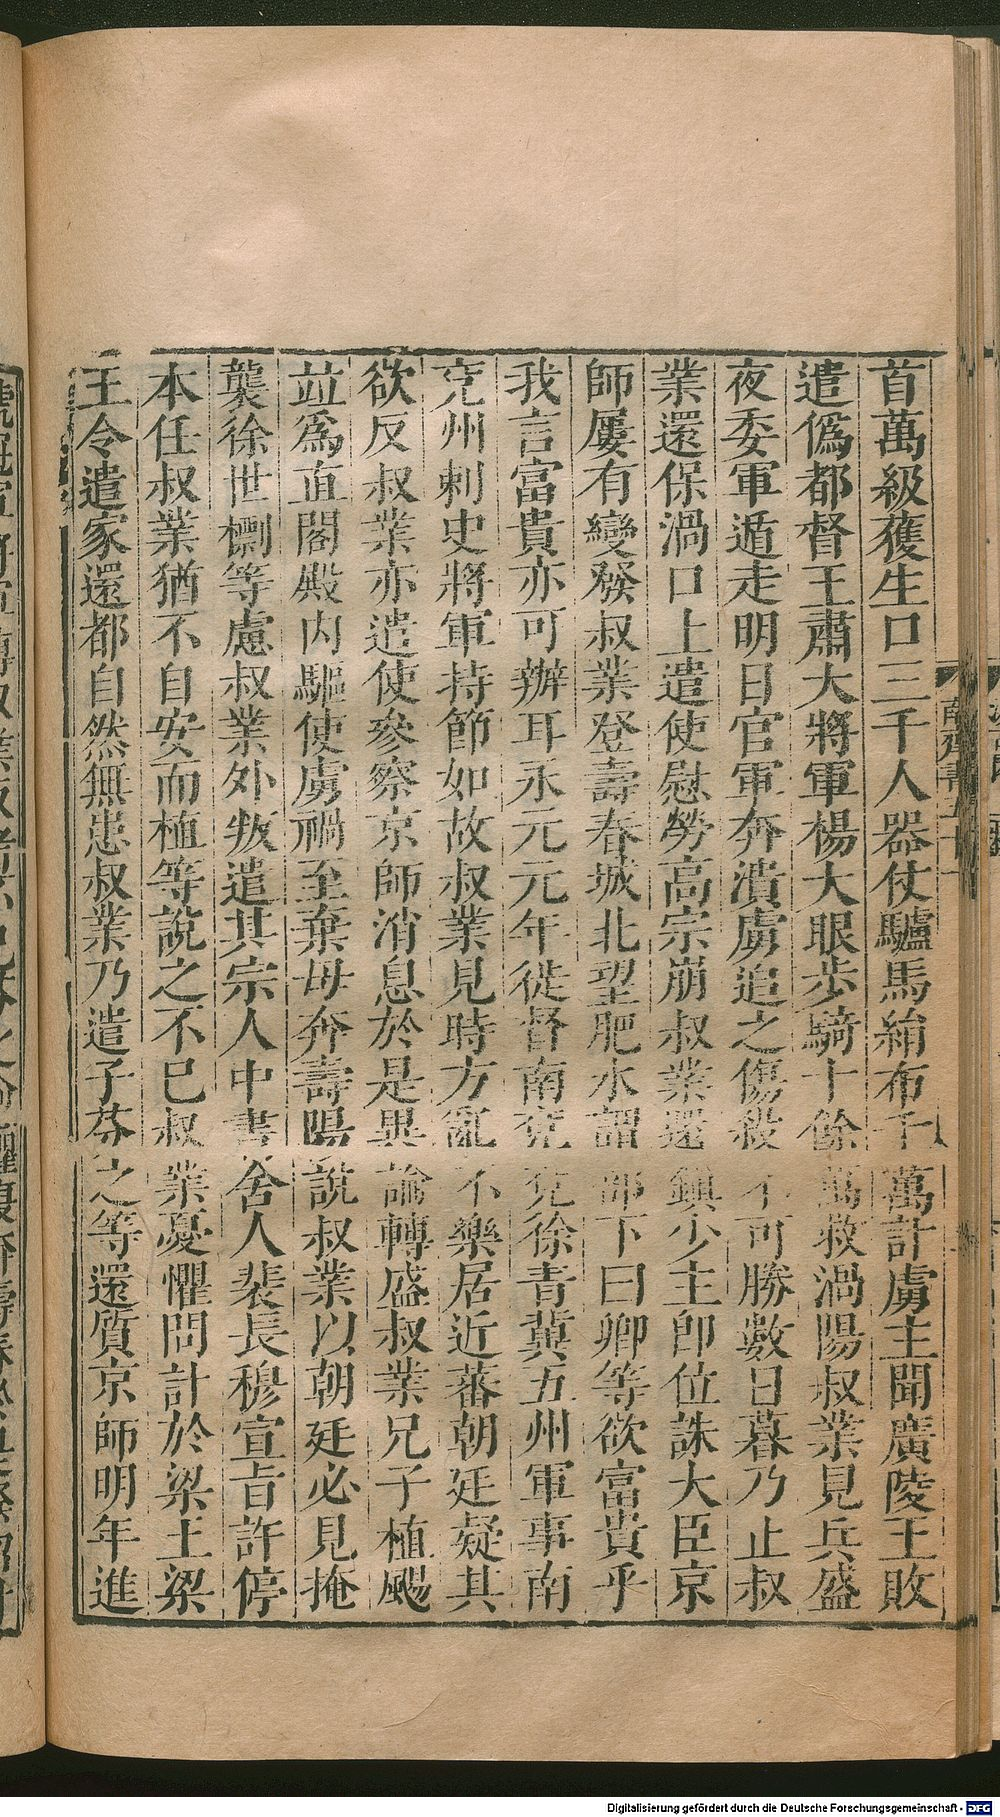 首萬級獲生口三千人器仗驢馬絹布千萬計虜主聞廣陵王敗
遣偽都督王肅大將軍楊大眼步騎十餘萬救渦陽叔業見兵盛
夜委軍遁走明日官軍奔潰虜追之傷殺不可勝數日暮乃止叔
業還保渦口上遣使慰勞高宗崩叔業還鎮少主即位誅大臣京
師屢有變發叔業登壽春城北望肥水謂部下曰卿等欲富貴乎
我言富貴亦可辦耳永元元年徙督南兗兗徐青冀五州軍事南
兗州刺史將軍持節如故叔業見時方亂不樂居近蕃朝廷疑其
欲反叔業亦遣使參察京師消息於是異論轉盛叔業兄子植颺
並爲直閤殿内驅使虜禍至棄母奔壽陽說叔業以朝廷必見掩
襲徐世檦等慮叔業外叛遣其宗人中書舍人裴長穆宣旨許停
本任叔業猶不自安而植等說之不已叔業憂懼問計於梁王梁
王令遣家還都自然無患叔業乃遣子芬之等還質京師明年進
南齊書五十一
Digitalisierung gefördert durch die Deutsche Forschungsgemeinschaft - DFG